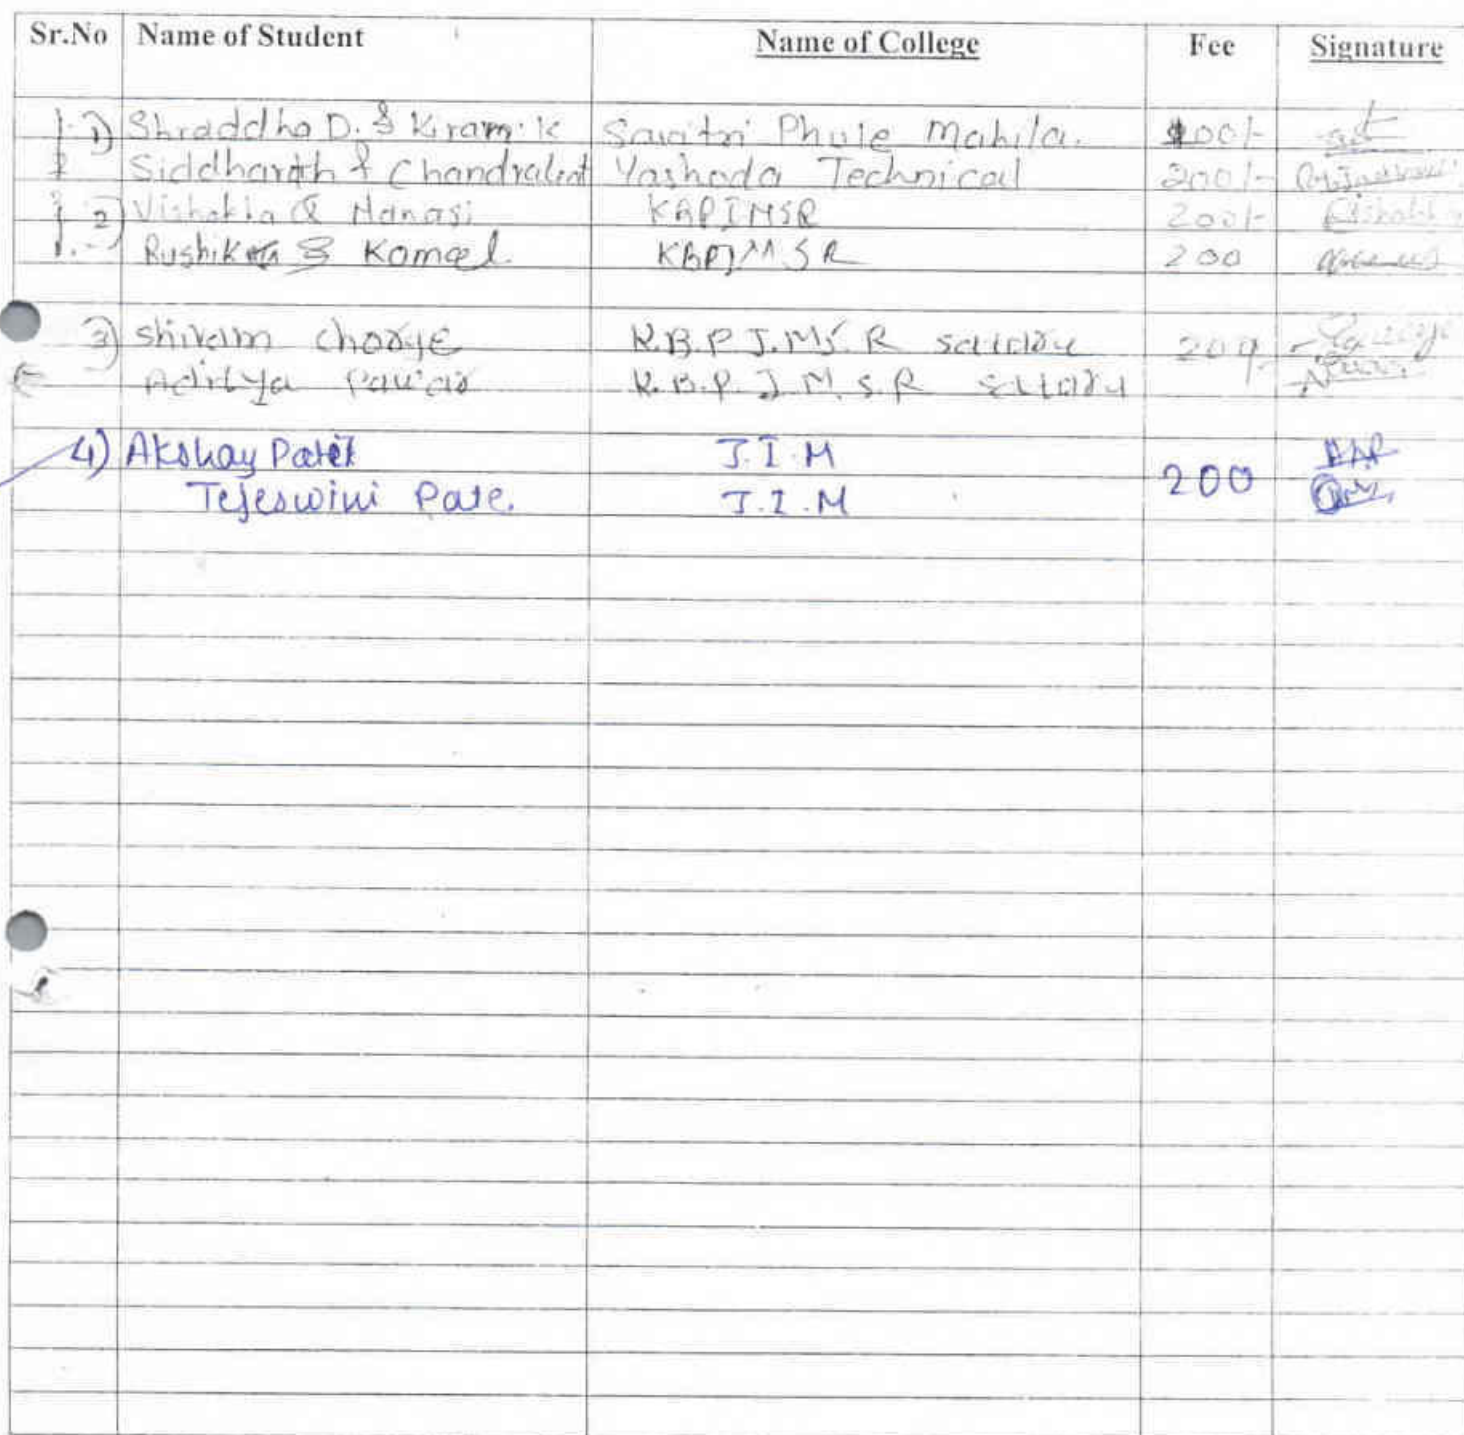 Sr.No Name of Student Name of College Fee Signature
1) Shraddha D. & Kiram.K Savitri Phule Mahila. 200/-
Siddharth & Chandrakant Yashoda Technical 200/-
2) Vishakha & Manasi KBPIMSR 200/-
Rushik & Komal KBPIMSR 200
3) Shivam chorge K.B.P I.M.S.R satara 200/-
Aditya Pawar K.B.P.I.M.S.R satara
4) Akshay Patil J.I.M 200 AAP
Tejeswini Pate. J.I.M